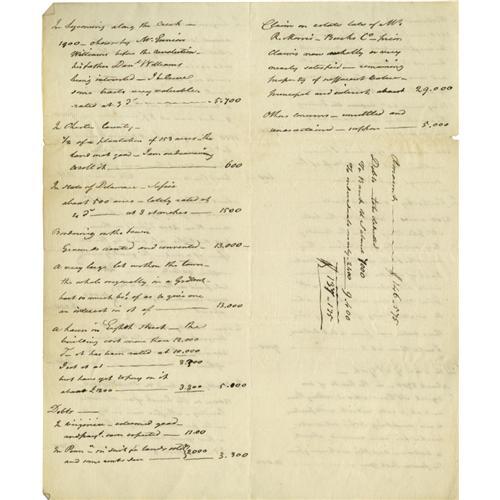 In Lycoming along the Creek —
1900 — chosen by Mr. Ennion
Williams before the revolution —
his father Danl. Williams
being interested — I believe
some tracts very valuable
rated at 3 Ds — 5.700
In Chester County —
½ of a plantation of 153 acres — the
Land not good — I am
worth 600
In State of Delaware —
about 500 acres — lately rated at
4 Ds at 3 1500
Bordering on the town
Grounds rented and unrented — 13.000 —
A very large lot within the town —
the whole originally on a
but so much of as to give one
an interest in it of — 13,000
A house in Eighth Street — the
building cost more than 12.000
it has been rated at 10.000
I set it at — 8.800
but have yet to pay on it
about £1200 — 3.800 5.000
Debts —
In Virginia — esteemed good —
and payt. soon expected — 1300
In Penna. in suit for lands sold 2000
and some notes due — 3.300
Claim on estate late of Mr.
R. Morris — Bucks Co. — prior
Claims now wholly or very
nearly satisfied — remaining
property of sufficient value —
principal and interest, about 29.000
Other concerns — unsettled and
uncertain — suppose — 5.000
Amounts — 146.575
Debts — to be deducted
To Bank U States 7000
To individuals nearly 2,400 9.400
$ 137.175